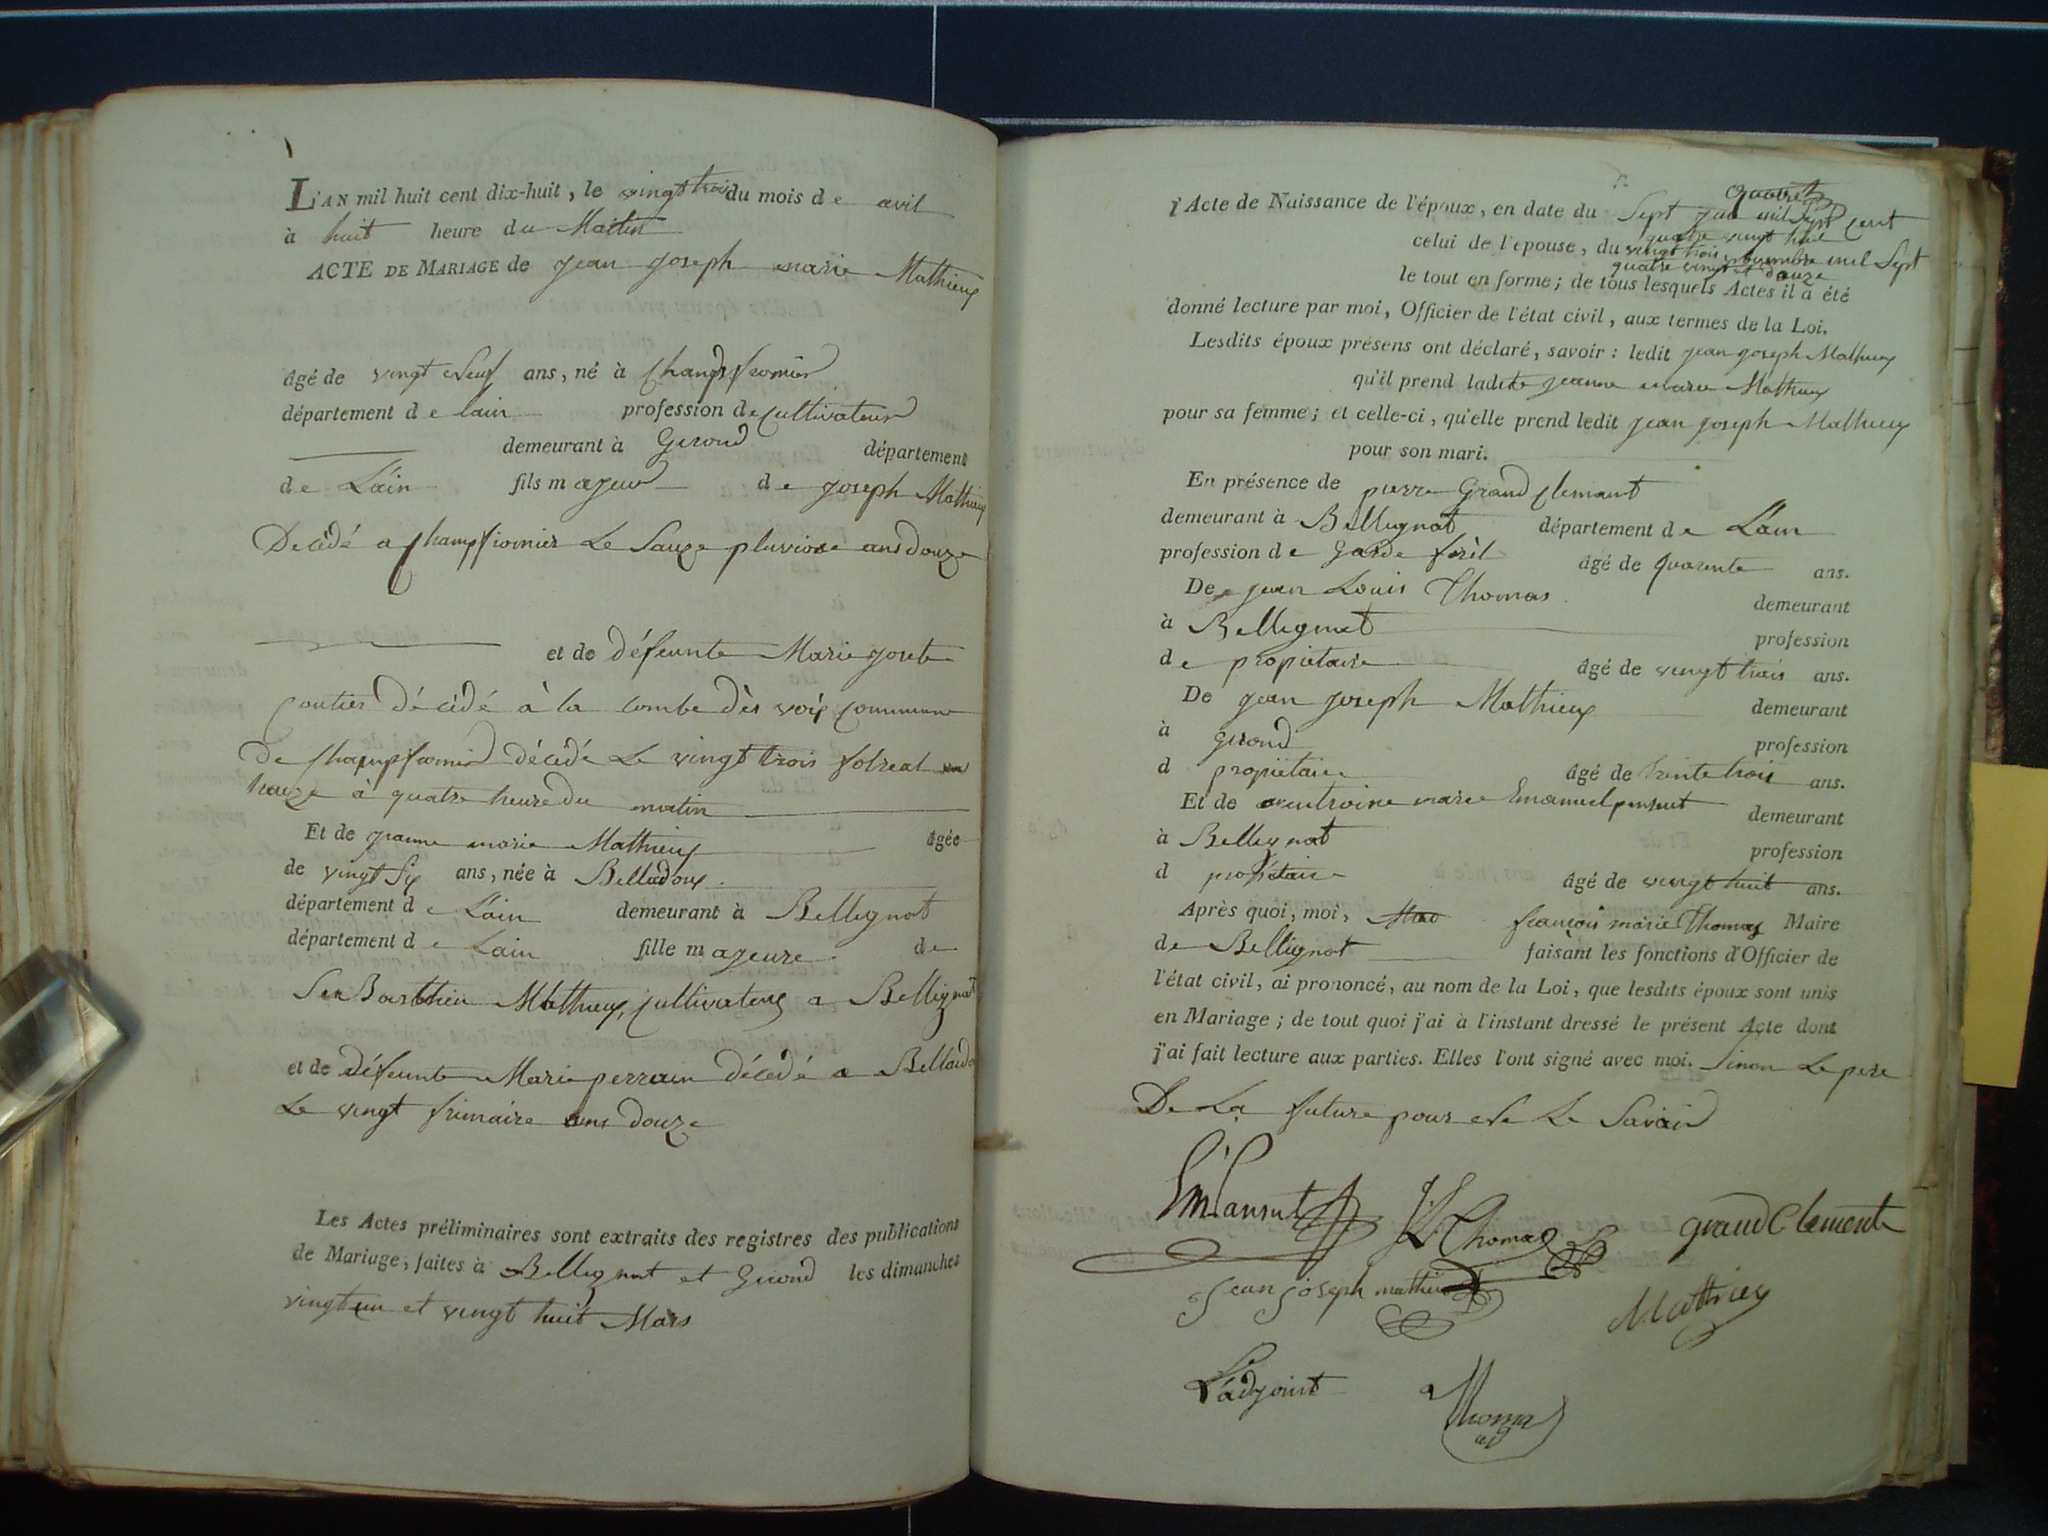 L'AN mil huit cent dix-huit, le vingt trois du mois de avil
à huit heure du Matin
ACTE DE MARIAGE de jean joseph marie Mathieux
âgé de vingt neuf ans, né à Champfromier
département de lain profession de Cultivateur
demeurant à Giriond département
de L'ain fils majeur de joseph Mathieux
Décédé a Champfromier Le Sauze pluviose ans douze
et de défeunte Marie josete
Coutier décédé à la Combe dès voix Commune
De Champfromier décédé Le vingt trois floreal
honze à quatre heure du matin
Et de jeanne marie Mathieux agée
de vingt Six ans, née à Belladoux
département de L'ain demeurant à Bellegnat
département de Lain fille majeure de
Mathieux, Cultivateur a Bellignat
et de défeunte Marie perrain décédé a Belladoux
Le vingt frimaire ans douze
Les Actes préliminaires sont extraits des registres des publications
de Mariage, faites à Bellegnat et Giriond les dimanches
vingt un et vingt huit Mars
l'Acte de Naissance de l'époux, en date du Sept juin mil Sept Cent
quatre vingt huit
celui de l'épouse, du vingt trois novembre mil Sept
quatre vingt et douze
le tout en forme; de tous lesquels Actes il a été
donné lecture par moi, Officier de l'état civil, aux termes de la Loi.
Lesdits époux présens ont déclaré, savoir: ledit jean joseph Mathieux
qu'il prend ladite jeanne marie Mathieux
pour sa femme; et celle-ci, qu'elle prend ledit jean joseph Mathieux
pour son mari.
En présence de pierre Grand Clemant
demeurant à Bellegnat département de L'ain
profession de Garde forêt âgé de quarente ans.
De jean Louis Thomas demeurant
à Bellegnat profession
de propietaire âgé de vingt trois ans.
De jean joseph Mathieux demeurant
à Giriond profession
d propietaire âgé de trente trois ans.
Et de marie Emanuel pansut demeurant
à Bellegnat profession
d propiétaire âgé de vingt huit ans.
Après quoi, moi, françois marie Thomas Maire
de Bellignat faisant les fonctions d'Officier de
l'état civil, ai prononcé, au nom de la Loi, que lesdits époux sont unis
en Mariage; de tout quoi j'ai à l'instant dressé le présent Acte dont
j'ai fait lecture aux parties. Elles l'ont signé avec moi. Sinon Le pere
De La future pour ne Le Savoir
Em Pansut J L Thomas grand Clement
jean joseph mathieux Mathieux
L'adjoint Thomas